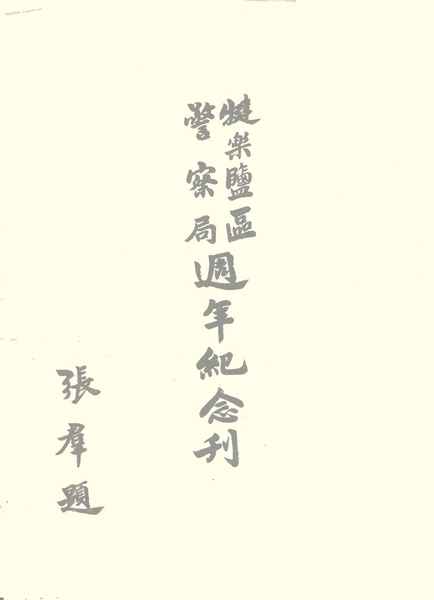 犍樂鹽區
警察局
週年紀念刊
張羣題